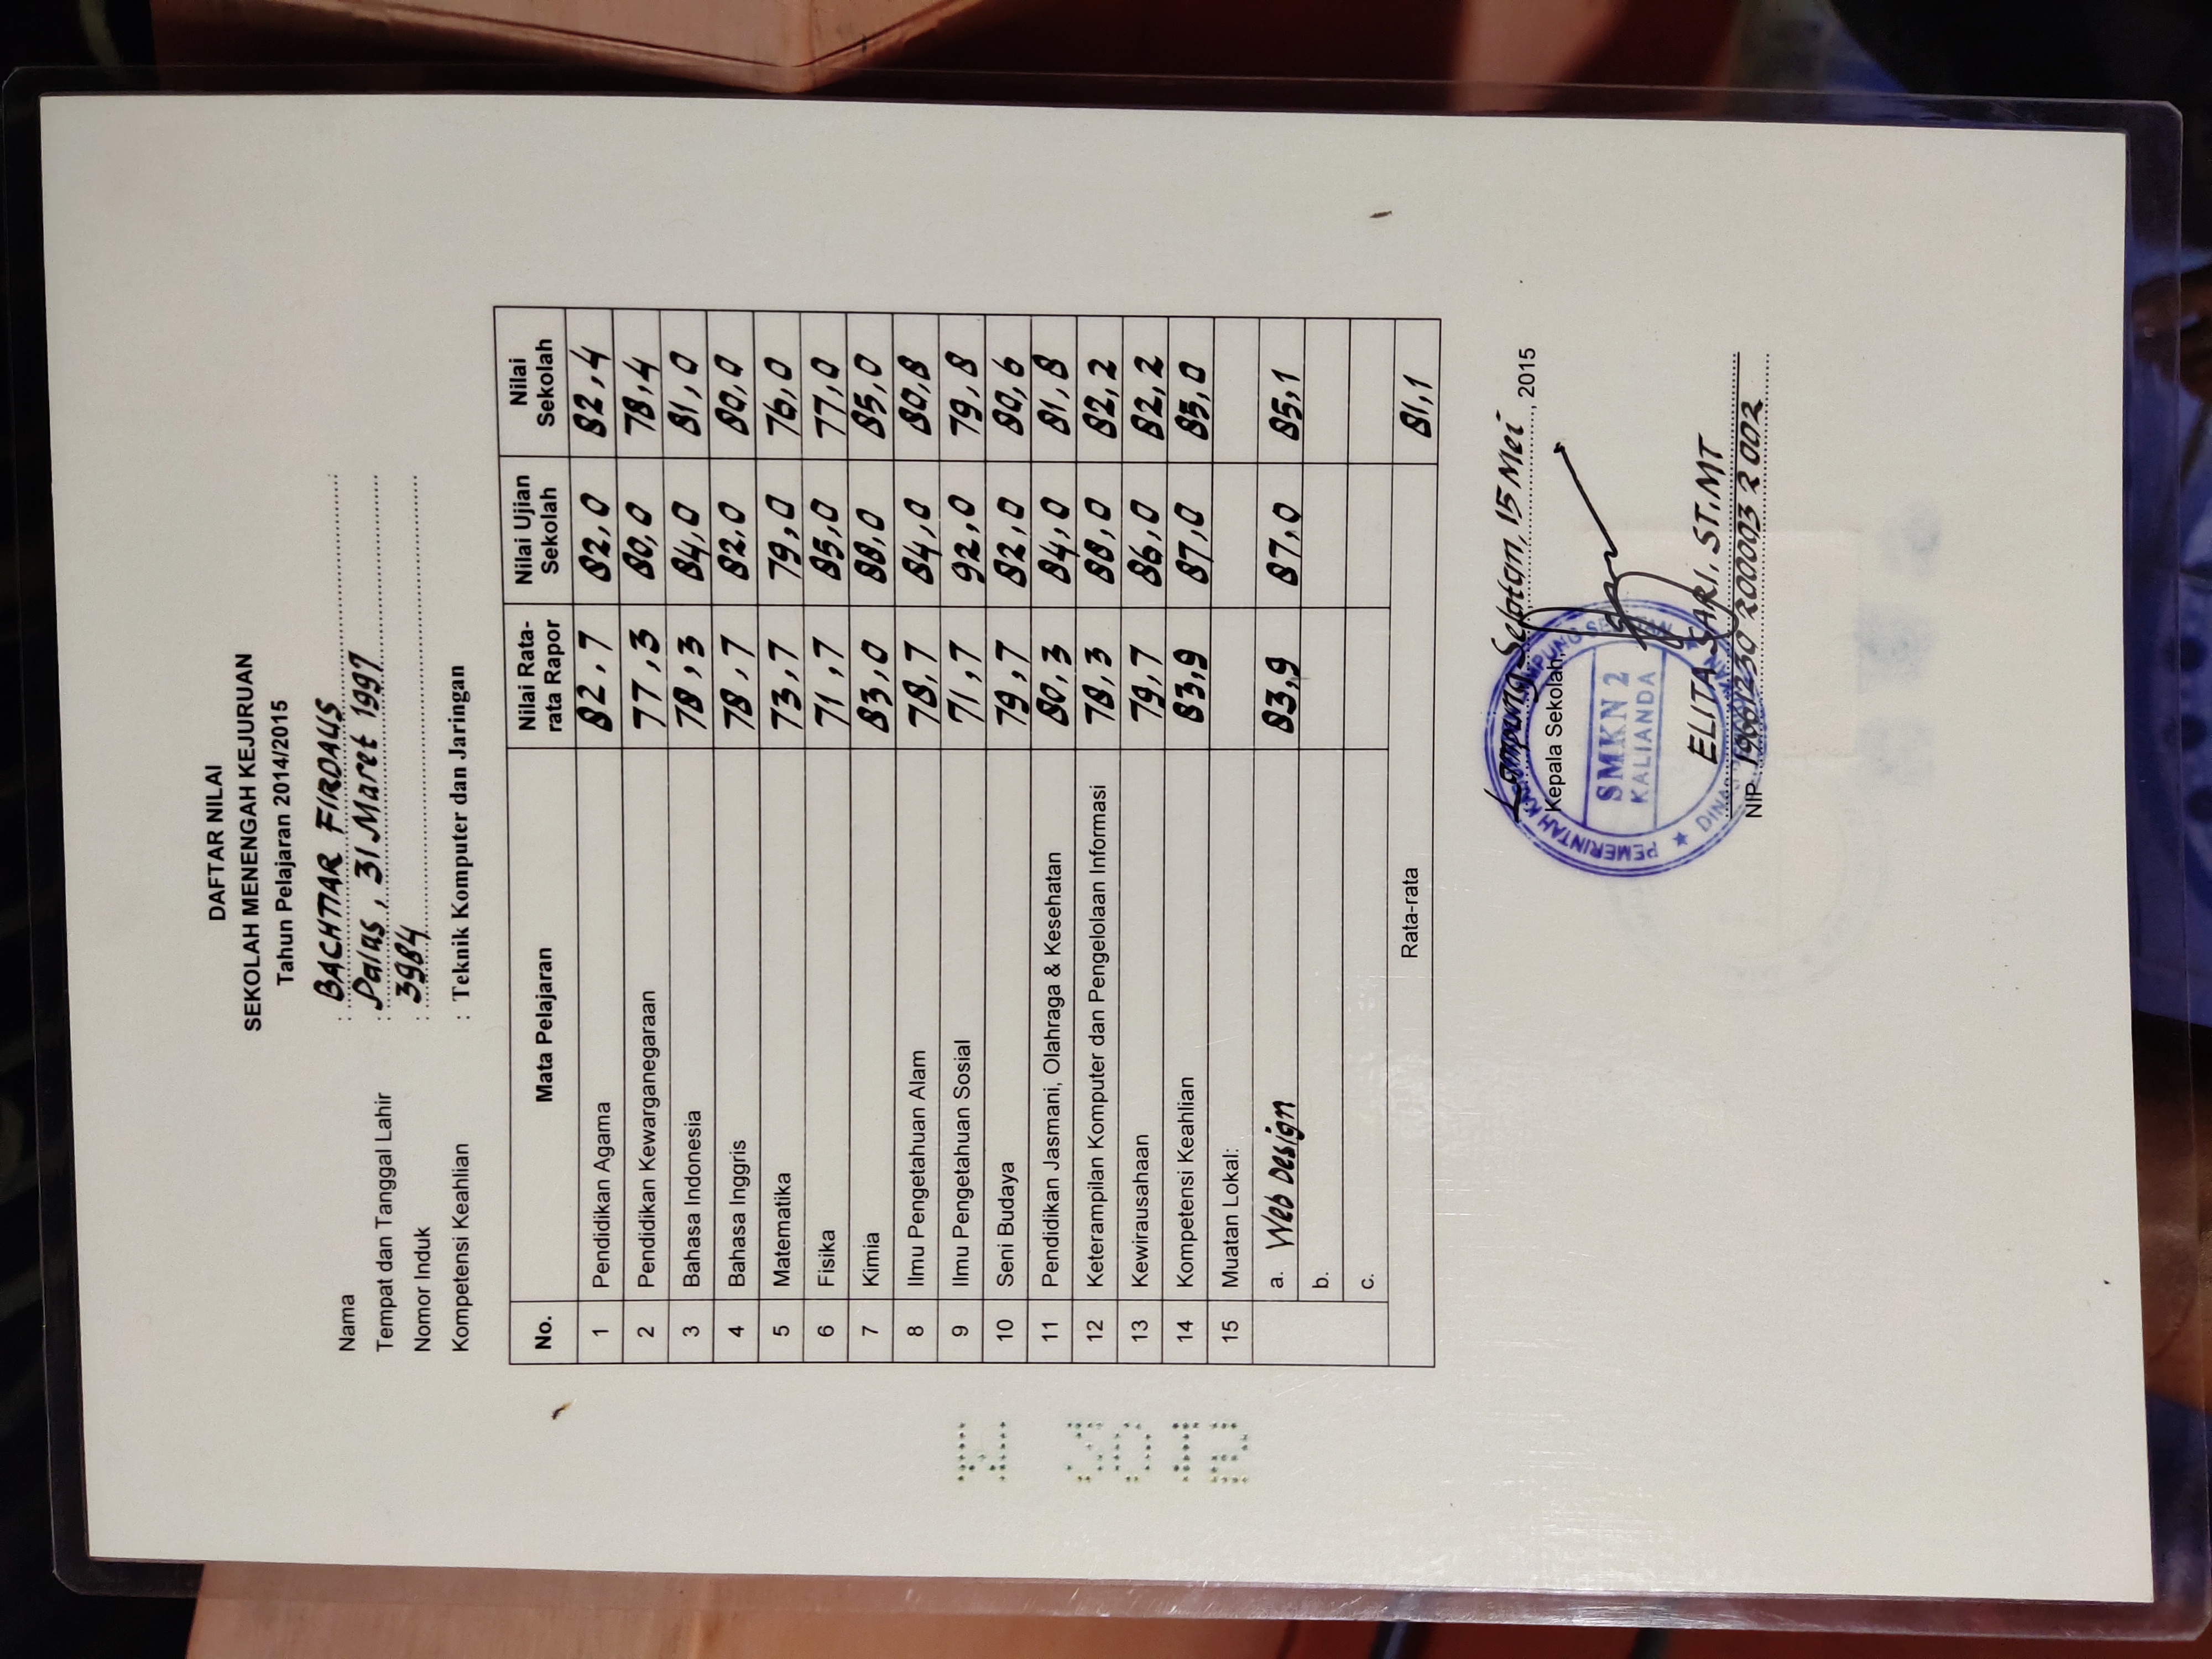 DAFTAR NILAI
SEKOLAH MENENGAH KEJURUAN
Tahun Pelajaran 2014/2015
Nama : BACHTIAR FIRDAUS
Tempat dan Tanggal Lahir : Palas, 31 Maret 1997
Nomor Induk : 3984
Kompetensi Keahlian : Teknik Komputer dan Jaringan
No. Mata Pelajaran Nilai Rata-rata Rapor Nilai Ujian Sekolah Nilai Sekolah
1 Pendidikan Agama 82,7 82,0 82,4
2 Pendidikan Kewarganegaraan 77,3 80,0 78,4
3 Bahasa Indonesia 78,3 84,0 81,0
4 Bahasa Inggris 78,7 82,0 80,0
5 Matematika 73,7 79,0 76,0
6 Fisika 71,7 85,0 77,0
7 Kimia 83,0 88,0 85,0
8 Ilmu Pengetahuan Alam 78,7 84,0 80,8
9 Ilmu Pengetahuan Sosial 71,7 92,0 79,8
10 Seni Budaya 79,7 82,0 80,6
11 Pendidikan Jasmani, Olahraga & Kesehatan 80,3 84,0 81,8
12 Keterampilan Komputer dan Pengelolaan Informasi 78,3 88,0 82,2
13 Kewirausahaan 79,7 86,0 82,2
14 Kompetensi Keahlian 83,9 87,0 85,0
15 Muatan Lokal:
a. Web Design 83,9 87,0 85,1
b.
c.
Rata-rata 81,1
Lampung Selatan, 15 Mei, 2015
Kepala Sekolah,
PEMERINTAH KABUPATEN LAMPUNG SELATAN
SMKN 2
KALIANDA
DINAS PENDIDIKAN
ELITA SARI, ST,MT
NIP 19661230 200003 2 002